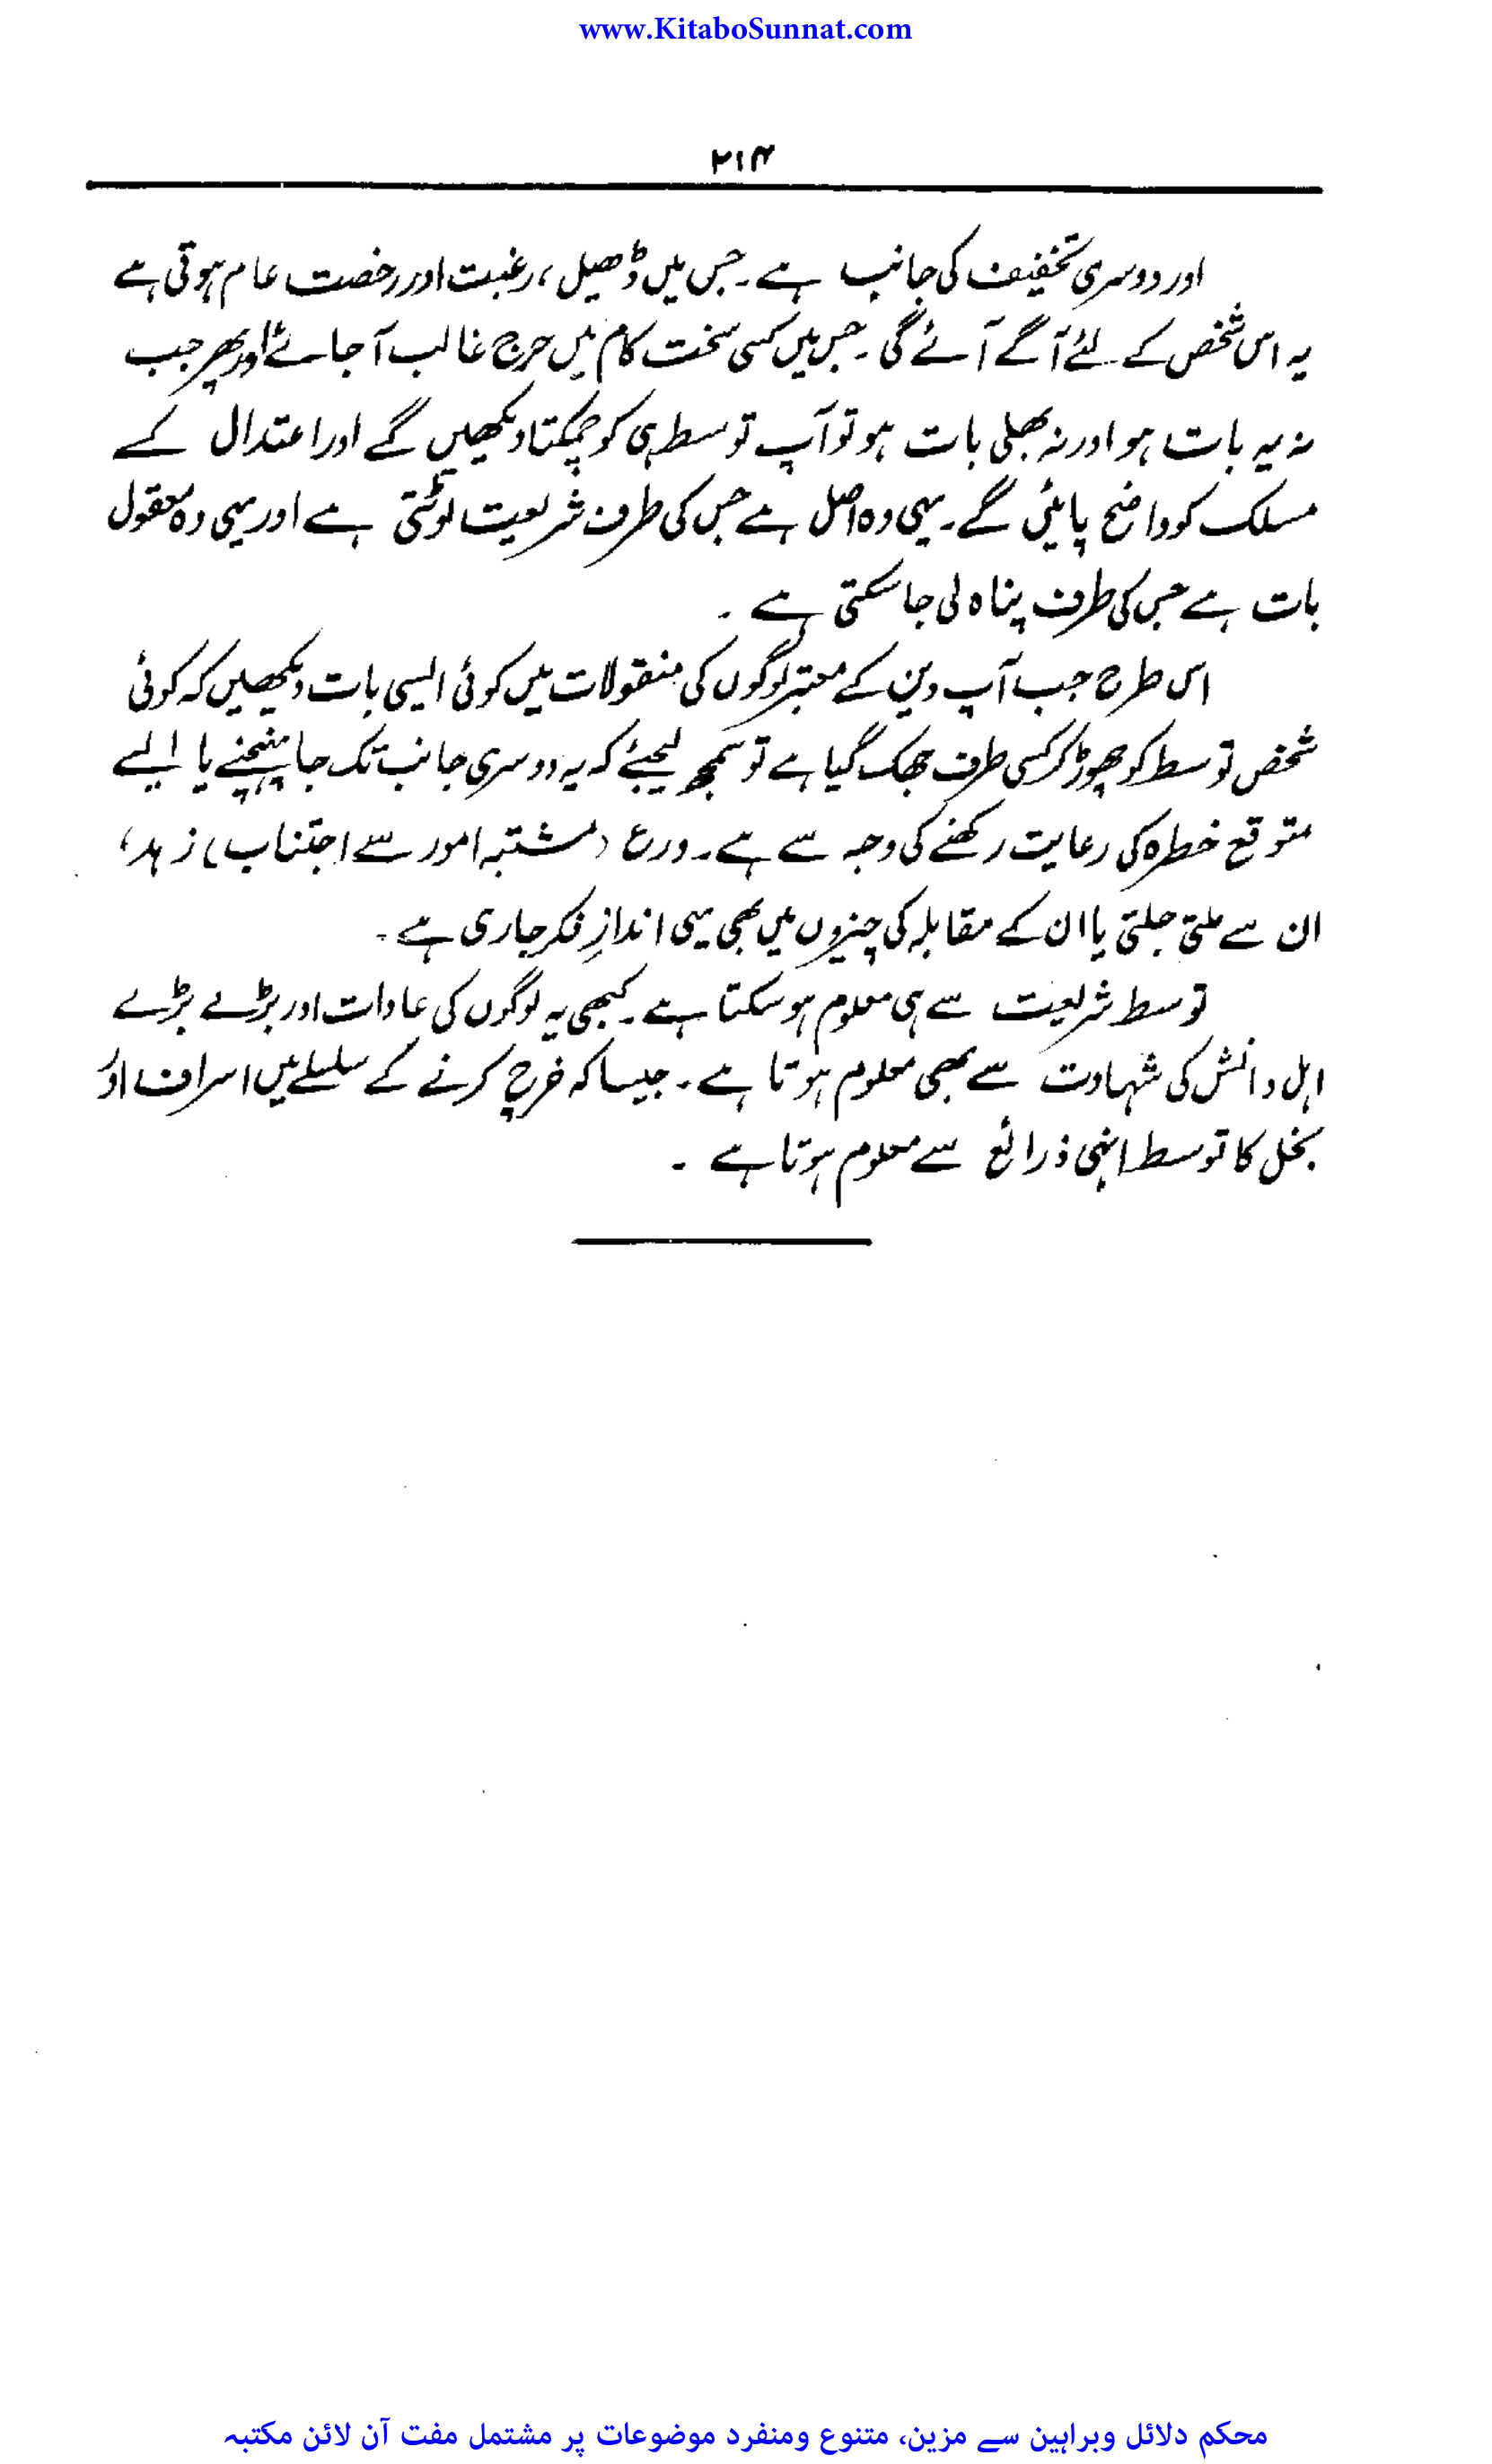 www.KitaboSunnat.com
۲۱۴
اور دوسری تخفیف کی جانب ہے۔ جس میں ڈھیل، رغبت اور رخصت عام ہوتی ہے
یہ اس شخص کے لئے آگے آئے گی۔ جس میں کسی سخت کام میں حرج غالب آجائے اور پھر جب
نہ یہ بات ہو اور نہ بھلی بات ہو تو آپ توسط ہی کو چمکتا دیکھیں گے اور اعتدال کے
مسلک کو واضح پائیں گے۔ یہی وہ اصل ہے جس کی طرف شریعت لوٹتی ہے اور یہی وہ معقول
بات ہے جس کی طرف پناہ لی جا سکتی ہے۔
اس طرح جب آپ دین کے معتبر لوگوں کی منقولات میں کوئی ایسی بات دیکھیں کہ کوئی
شخص توسط کو چھوڑ کر کسی طرف جھک گیا ہے تو سمجھ لیجئے کہ یہ دوسری جانب تک جا پہنچنے یا ایسے
متوقع خطرہ کی رعایت رکھنے کی وجہ سے ہے۔ ورع (مشتبہ امور سے اجتناب) زہد،
ان سے ملتی جلتی یا ان کے مقابلہ کی چیزوں میں بھی یہی اندازِ فکر جاری ہے۔
توسط شریعت سے ہی معلوم ہو سکتا ہے۔ کبھی یہ لوگوں کی عادات اور بڑے بڑے
اہل دانش کی شہادت سے بھی معلوم ہوتا ہے۔ جیسا کہ خرچ کرنے کے سلسلے میں اسراف اور
بخل کا توسط انہی ذرائع سے معلوم ہوتا ہے۔
محکم دلائل وبراہین سے مزین، متنوع ومنفرد موضوعات پر مشتمل مفت آن لائن مکتبہ